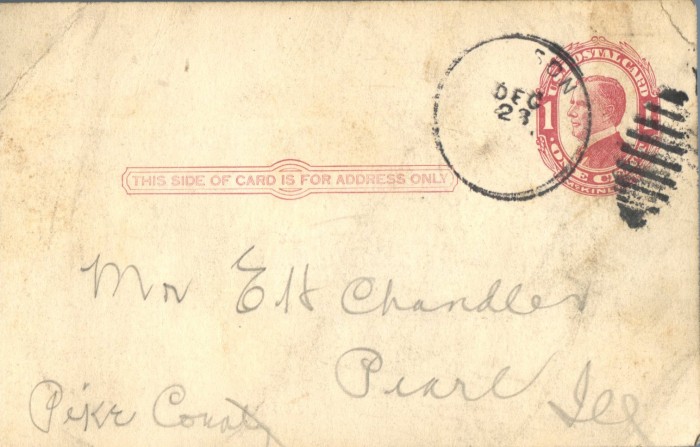 SON
DEC
23
U.S. POSTAL CARD
1
ONE CENT
McKINLEY
THIS SIDE OF CARD IS FOR ADDRESS ONLY
Mr E H Chandler
Pearl Ill
Pike County